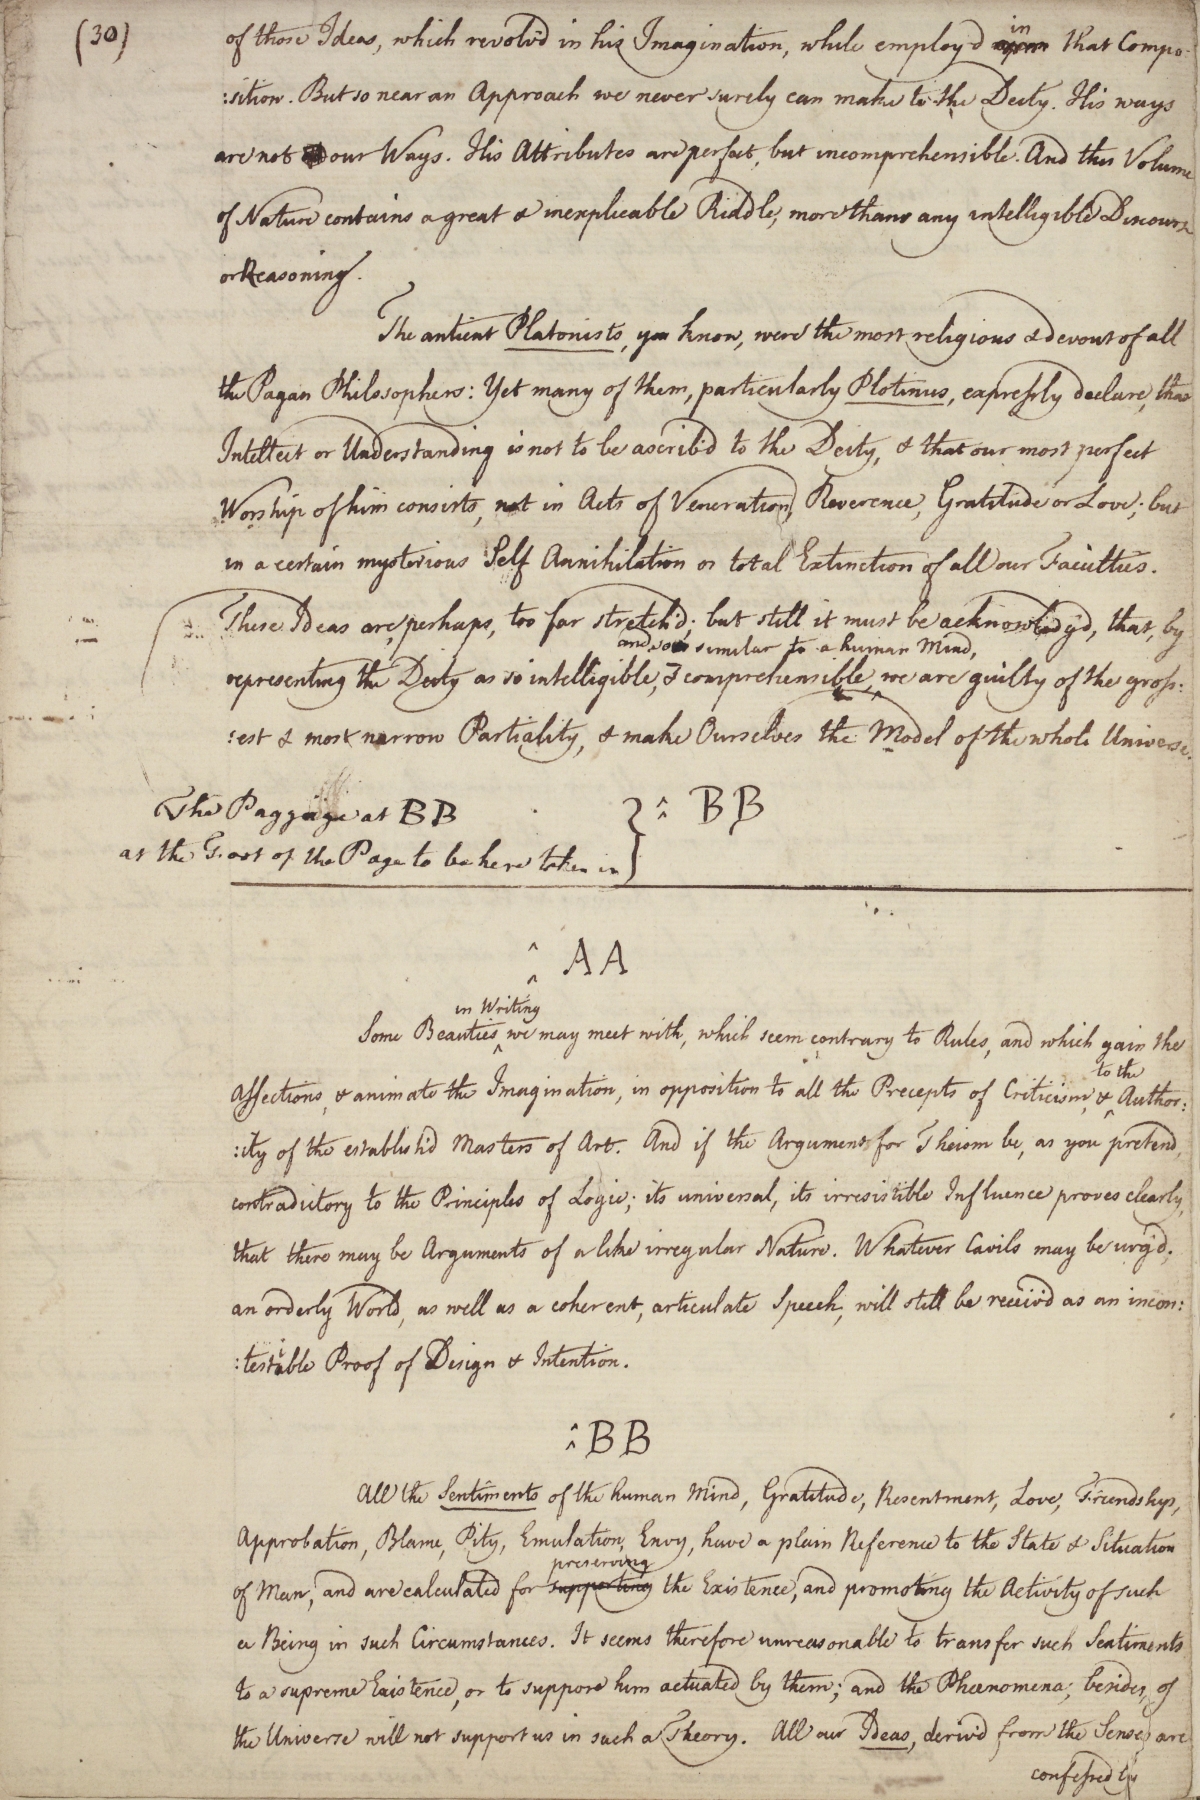 (30)
of those Ideas, which revolv'd in his Imagination, while employ'd in that Compo-
:sition. But so near an Approach we never surely can make to the Deity. His ways
are not our Ways. His Attributes are perfect, but incomprehensible. And this Volume
of Nature contains a great & inexplicable Riddle, more than any intelligible Discourse
or Reasoning.
The antient Platonists, you know, were the most religious & devout of all
the Pagan Philosophers: Yet many of them, particularly Plotinus, expressly declare, that
Intellect or Understanding is not to be ascrib'd to the Deity, & that our most perfect
Worship of him consists, not in Acts of Veneration, Reverence, Gratitude or Love; but
in a certain mysterious Self Annihilation or total Extinction of all our Faculties.
These Ideas are, perhaps, too far stretch'd; but still it must be acknowledg'd, that, by
and so similar to a human Mind,
representing the Deity as so intelligible, & comprehensible, we are guilty of the gross:
:est & most narrow Partiality, & make Ourselves the Model of the whole Universe.
The Passage at BB
at the Foot of the Page to be here taken in
BB
AA
in Writing
Some Beauties we may meet with, which seem contrary to Rules, and which gain the
to the
Affections, & animate the Imagination, in opposition to all the Precepts of Criticism, & Author:
:ity of the establish'd Masters of Art. And if the Argument for Theism be, as you pretend,
contradictory to the Principles of Logic; its universal, its irresistible Influence proves clearly,
that there may be Arguments of a like irregular Nature. Whatever Cavils may be urg'd;
an orderly World, as well as a coherent, articulate Speech, will still be receiv'd as an incon:
:testible Proof of Design & Intention.
BB
All the Sentiments of the human Mind, Gratitude, Resentment, Love, Friendship,
Approbation, Blame, Pity, Emulation, Envy, have a plain Reference to the State & Situation
preserving
of Man, and are calculated for supporting the Existence, and promoting the Activity of such
a Being in such Circumstances. It seems therefore unreasonable to transfer such Sentiments
to a supreme Existence, or to suppose him actuated by them; and the Phænomena, besides, of
the Universe will not support us in such a Theory. All our Ideas, deriv'd from the Senses are
confessedly